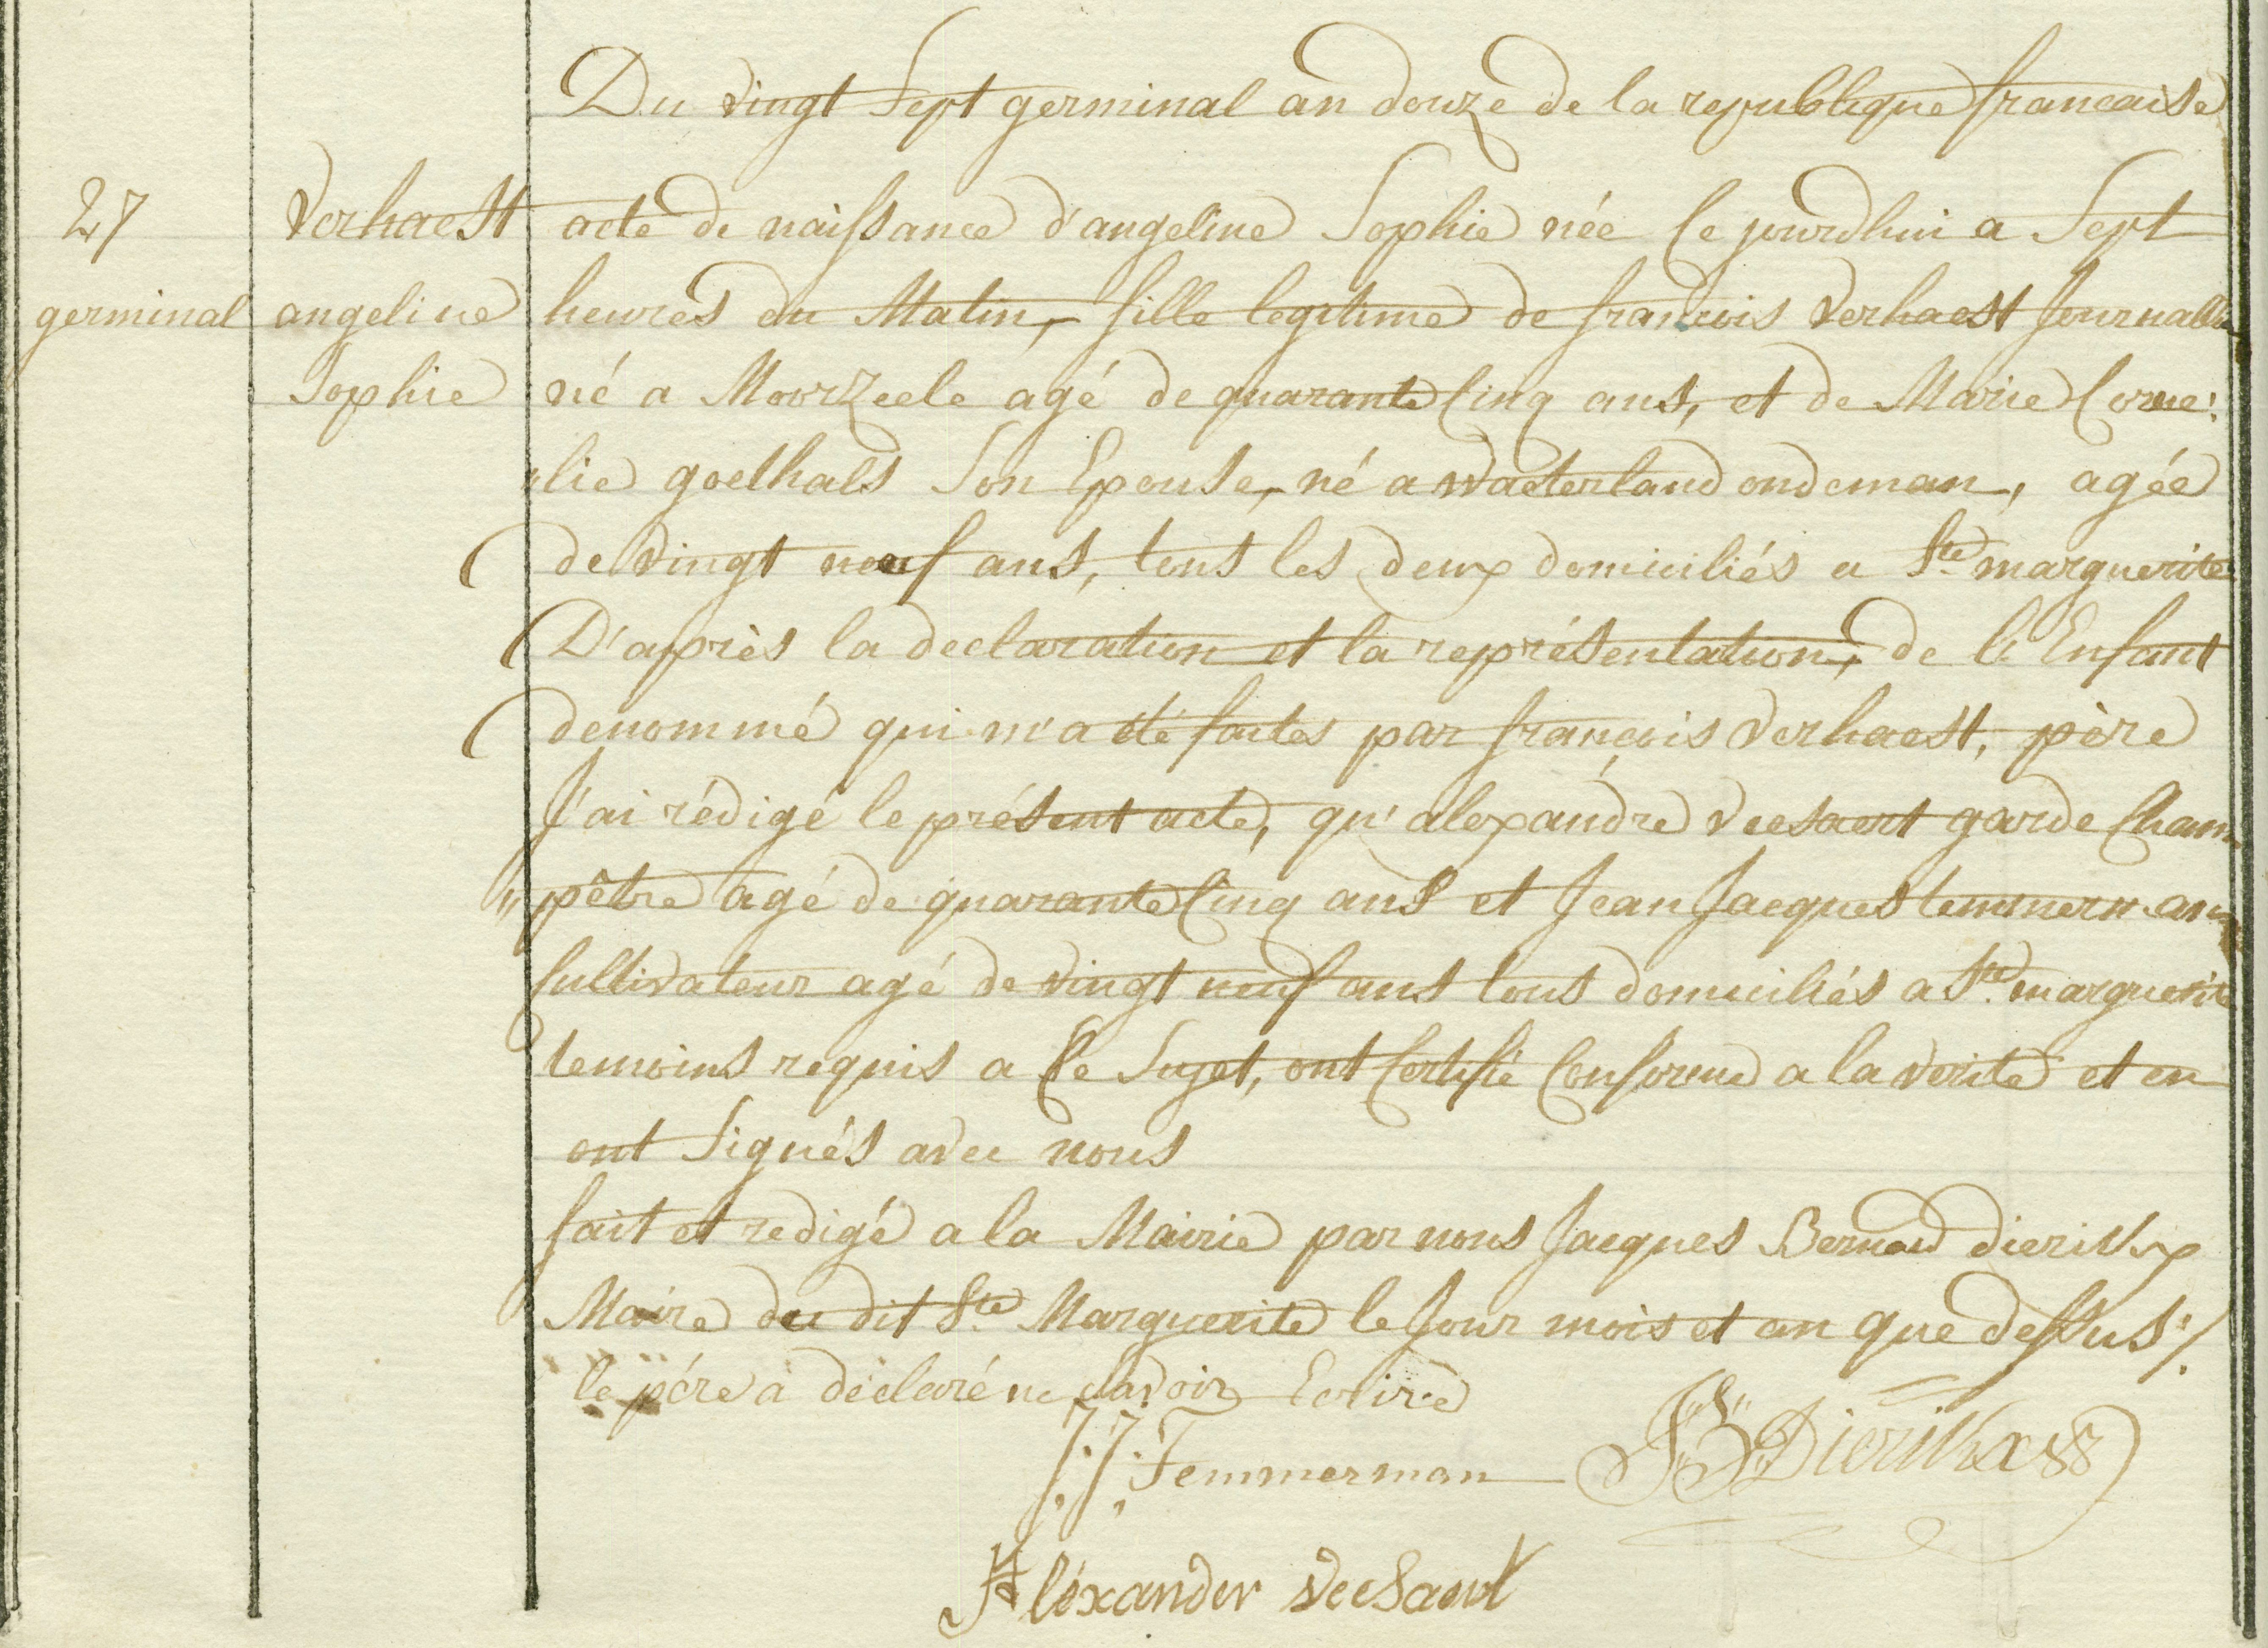 Du vingt Sept germinal an douze de la republique francaise
27 Verhaest acte de naissance d'angeline Sophie née Ce jourdhui a Sept
germinal angeline heures du Matin, fille legitime de francois Verhaest Journallier
Sophie né a Moorzeele agé de quarante Cinq ans, et de Marie Corne:
"lie goethals Son Epouse, né a Waeterland ondeman, agée
de Vingt neuf ans, tous les deux domiciliés a Ste marguerite
D'après la declaration et la représentation, de l'Enfant
denommé qui m'a été faites par françois Verhaest, père
J'ai rédigé le présent acte, qu'alexandre Veesaert garde Cham
"pêtre agé de quarante Cinq ans et Jean Jacques temmerman
Cultivateur agé de vingt neuf ans tous domiciliés a Ste marguerite
temoins requis a Ce Sujet, ont Certifié Conforme a la verité et en
ont Signés avec nous
fait et redigé a la Mairie par nous Jacques Bernard dierickx
Maire du dit Ste Marguerite le Jour mois et an que dessus ·/.
le pére a déclaré ne savoir Ecrire
J: J: Temmerman JB Dierickx
Aléxander Veesaert